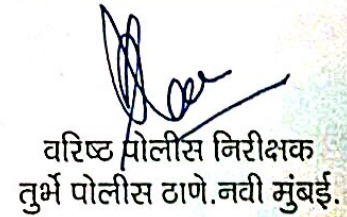 वरिष्ठ पोलीस निरीक्षक
तुर्भे पोलीस ठाणे.नवी मुंबई.